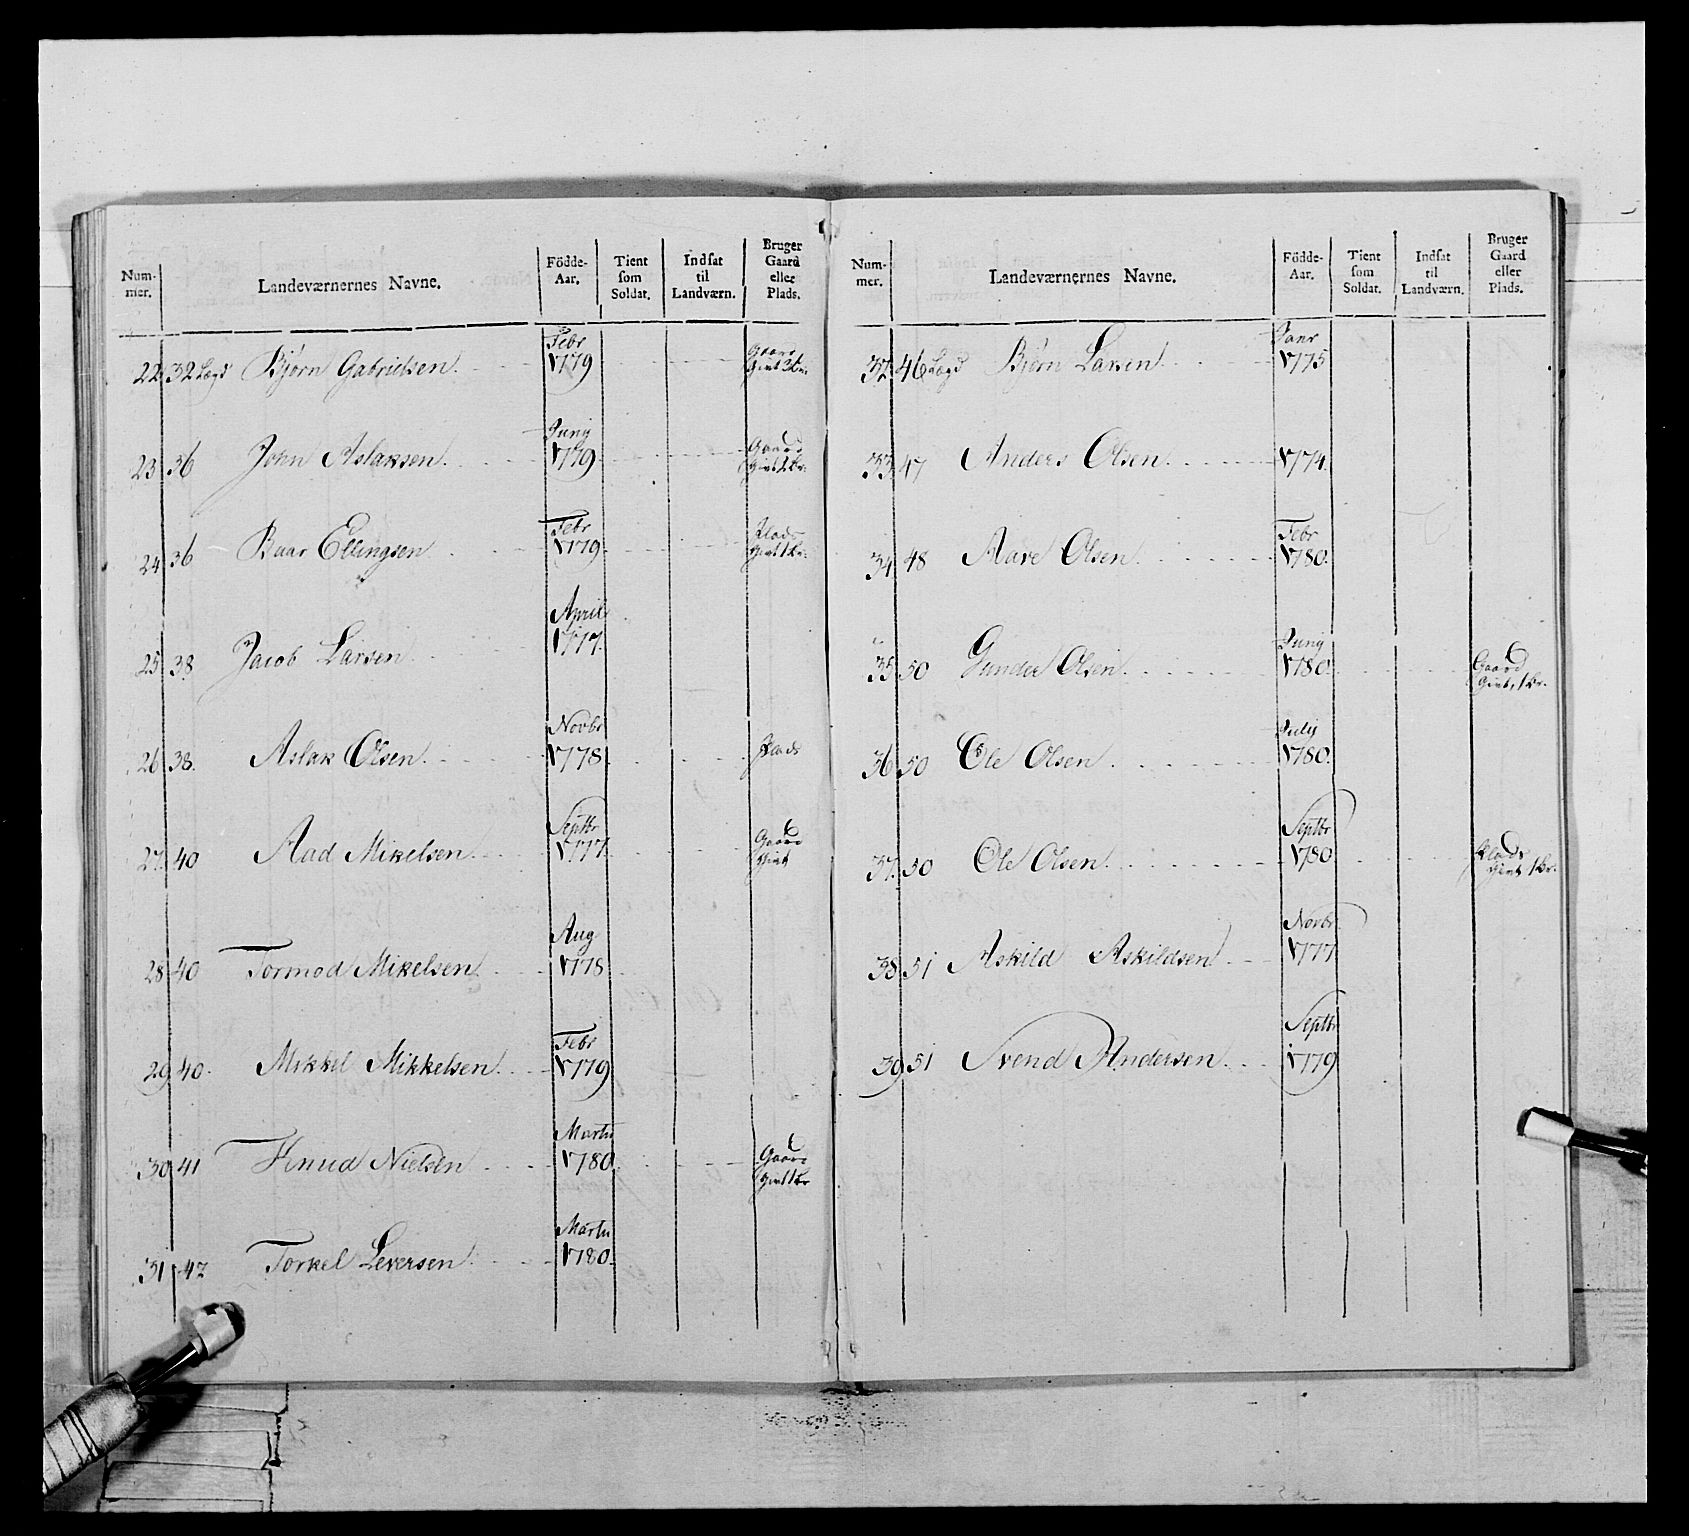 Num-
mer.
Landeværnernes Navne.
Födde-
Aar.
Tient
som
Soldat.
Indsat
til
Landværn.
Bruger
Gaard
eller
Plads.
22 32 Lægd Bjørn Gabrielsen. Febr 1779 Gaard
Givt 3 br.
23 36 John Aslaksen. Junij 1779 Gaard
Givt br.
24 36 Baar Ellingsen Febr 1779 Plads
Givt 1 br.
25 38 Jacob Larsen April 1777.
26 38. Aslak Olsen. Novbr 1778. Plads
27. 40 Aad Mikelsen. Septbr 1777. Gaard
Givt
28 40 Tormod Mikelsen. Aug 1778
29 40. Mikkel Mikkelsen. Febr 1779
30 41 Knud Nielsen Marts 1780. Gaard
Givt 1 br
31 42 Torkel Leversen. Marts 1780.
Num-
mer.
Landeværnernes Navne.
Födde-
Aar.
Tient
som
Soldat.
Indsat
til
Landværn.
Bruger
Gaard
eller
Plads.
32 46 Lægd Biørn Larsen. Janr 1775
33 47 Anders Olsen. 1774.
34 48 Aare Olsen. Febr 1780.
35 50 Gunder Olsen. Junij 1780. Gaard
Givt, 1 br.
36 50 Ole Olsen. Julij 1780.
37. 50 Ole Olsen. Septbr 1780 Plads
Givt 1 br.
38 51 Askild Askildsen. Novbr 1777
39 51 Svend Andersen. Septbr 1779